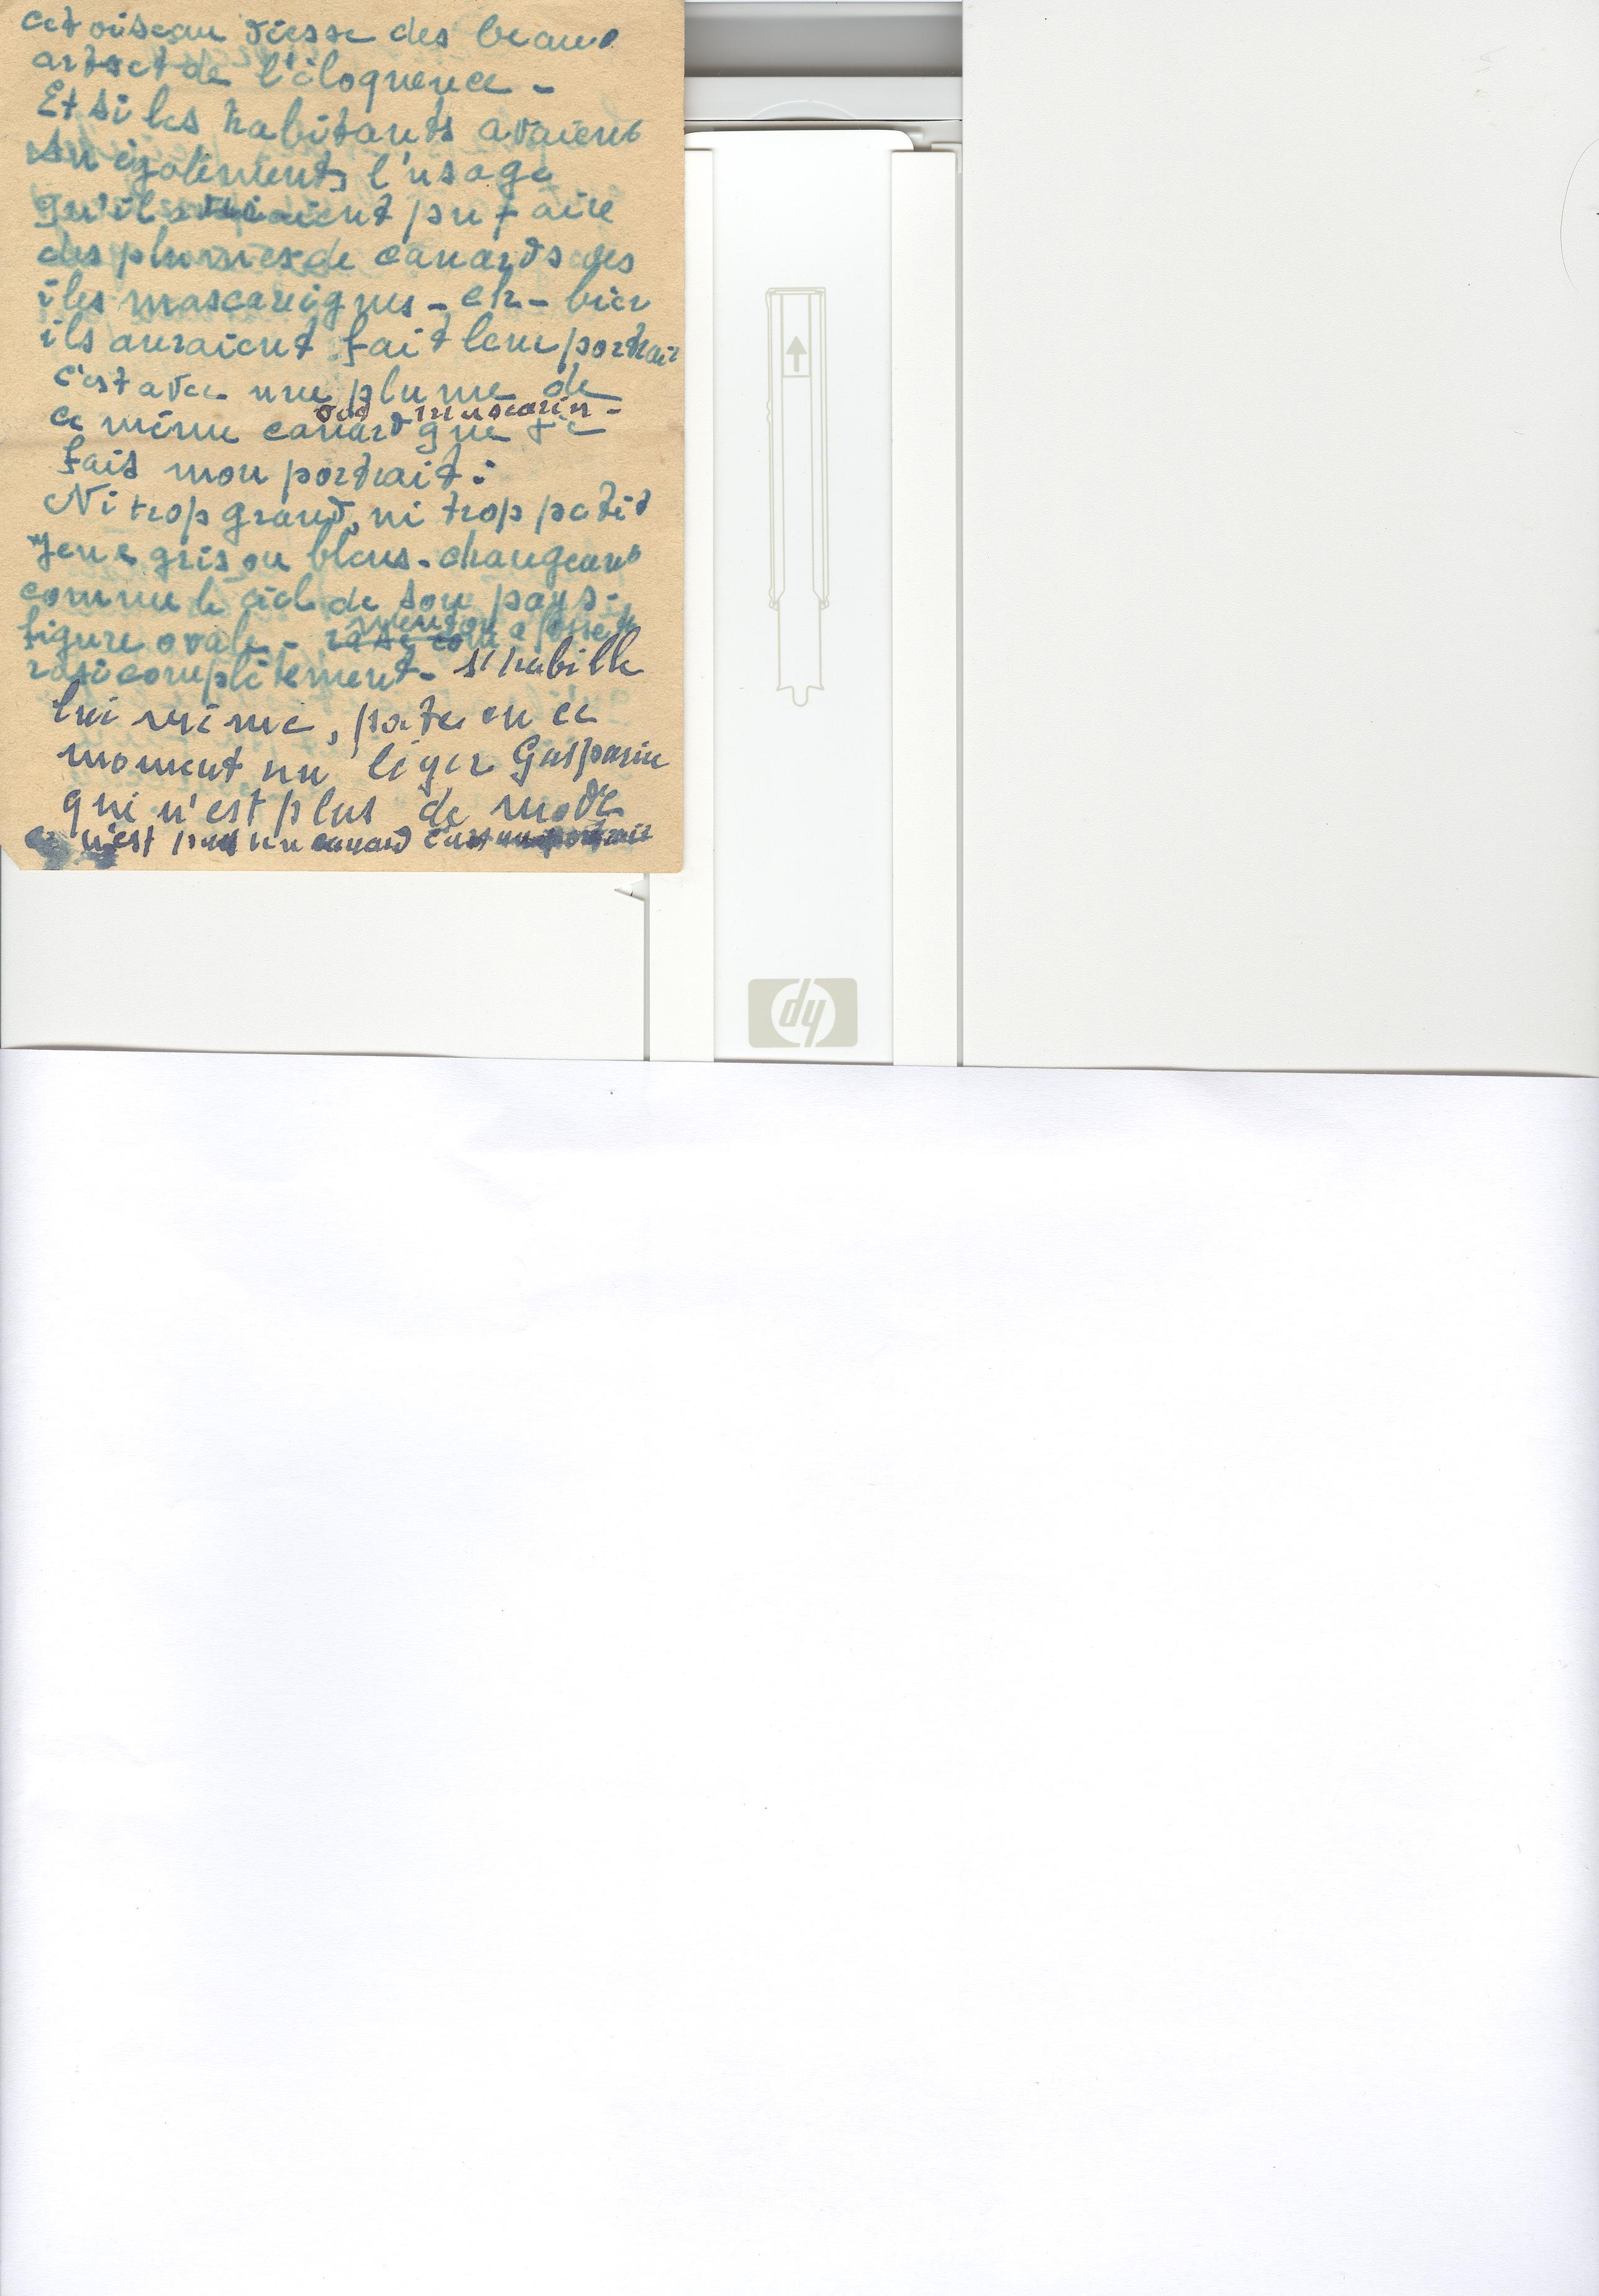 cet oiseau déesse des beaux
arts et de l'éloquence -
Et si les habitants avaient
su également, l'usage
qu'il auraient pu faire
des plumes de canards des
iles mascareignes - eh - bien
ils auraient fait leur portrait
c'est avec une plume de
mascarin -
ce même canard que je
fais mon portrait :
Ni trop grand, ni trop petit
yeux gris ou bleus - changeant
comme le ciel de son pays -
figure ovale - menton a fossette
rasé complètement - s'habille
lui même, porte en ce
moment un léger Gasparin
qui n'est plus de mode
ce n'est pas un canard c'est un portrait
hp